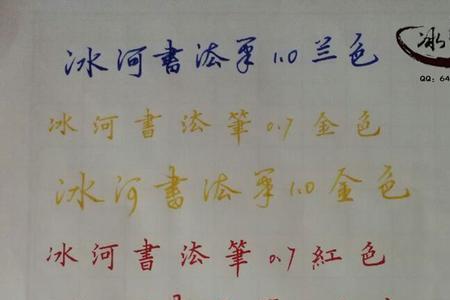 冰河書法笔1.0兰色
冰
QQ：64
冰河書法筆0.7金色
冰河書法笔1.0金色
冰河書法筆0.7紅色